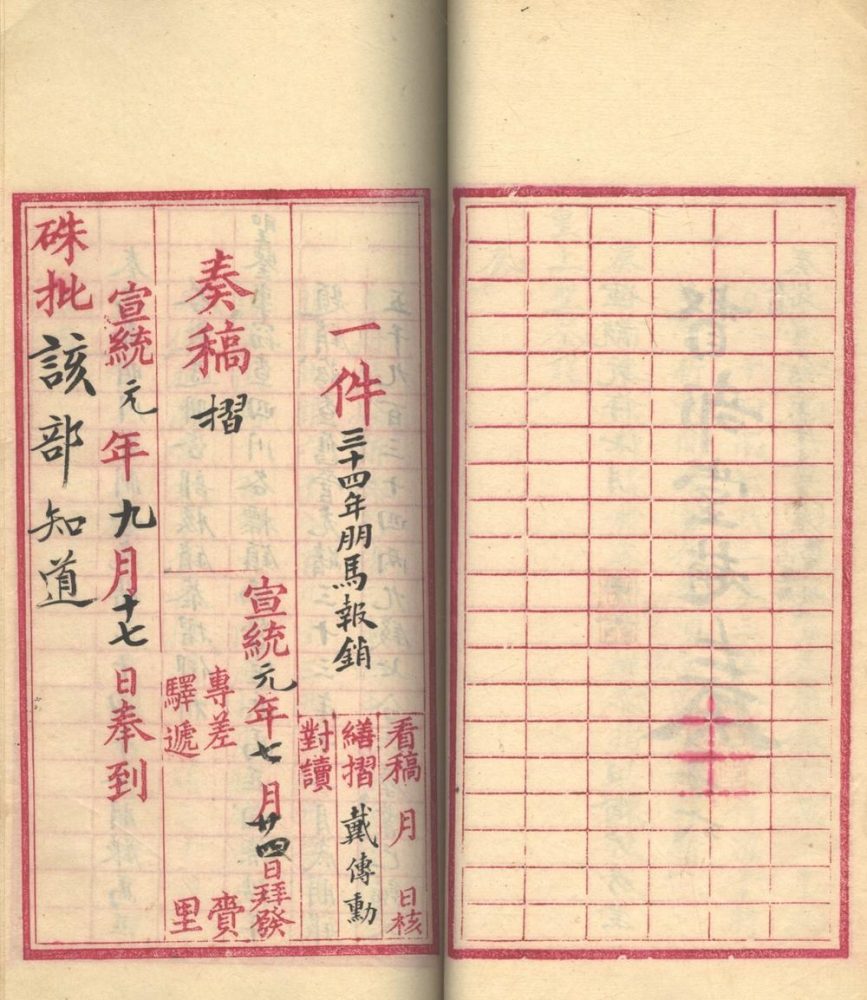 看稿 月 日核
繕摺 戴傳勳
對讀
一件 三十四年朋馬報銷
宣統元年七月廿四日拜發
奏稿 摺
專差 賫
驛遞 里
宣統元年九月十七日奉到
硃批 該部知道